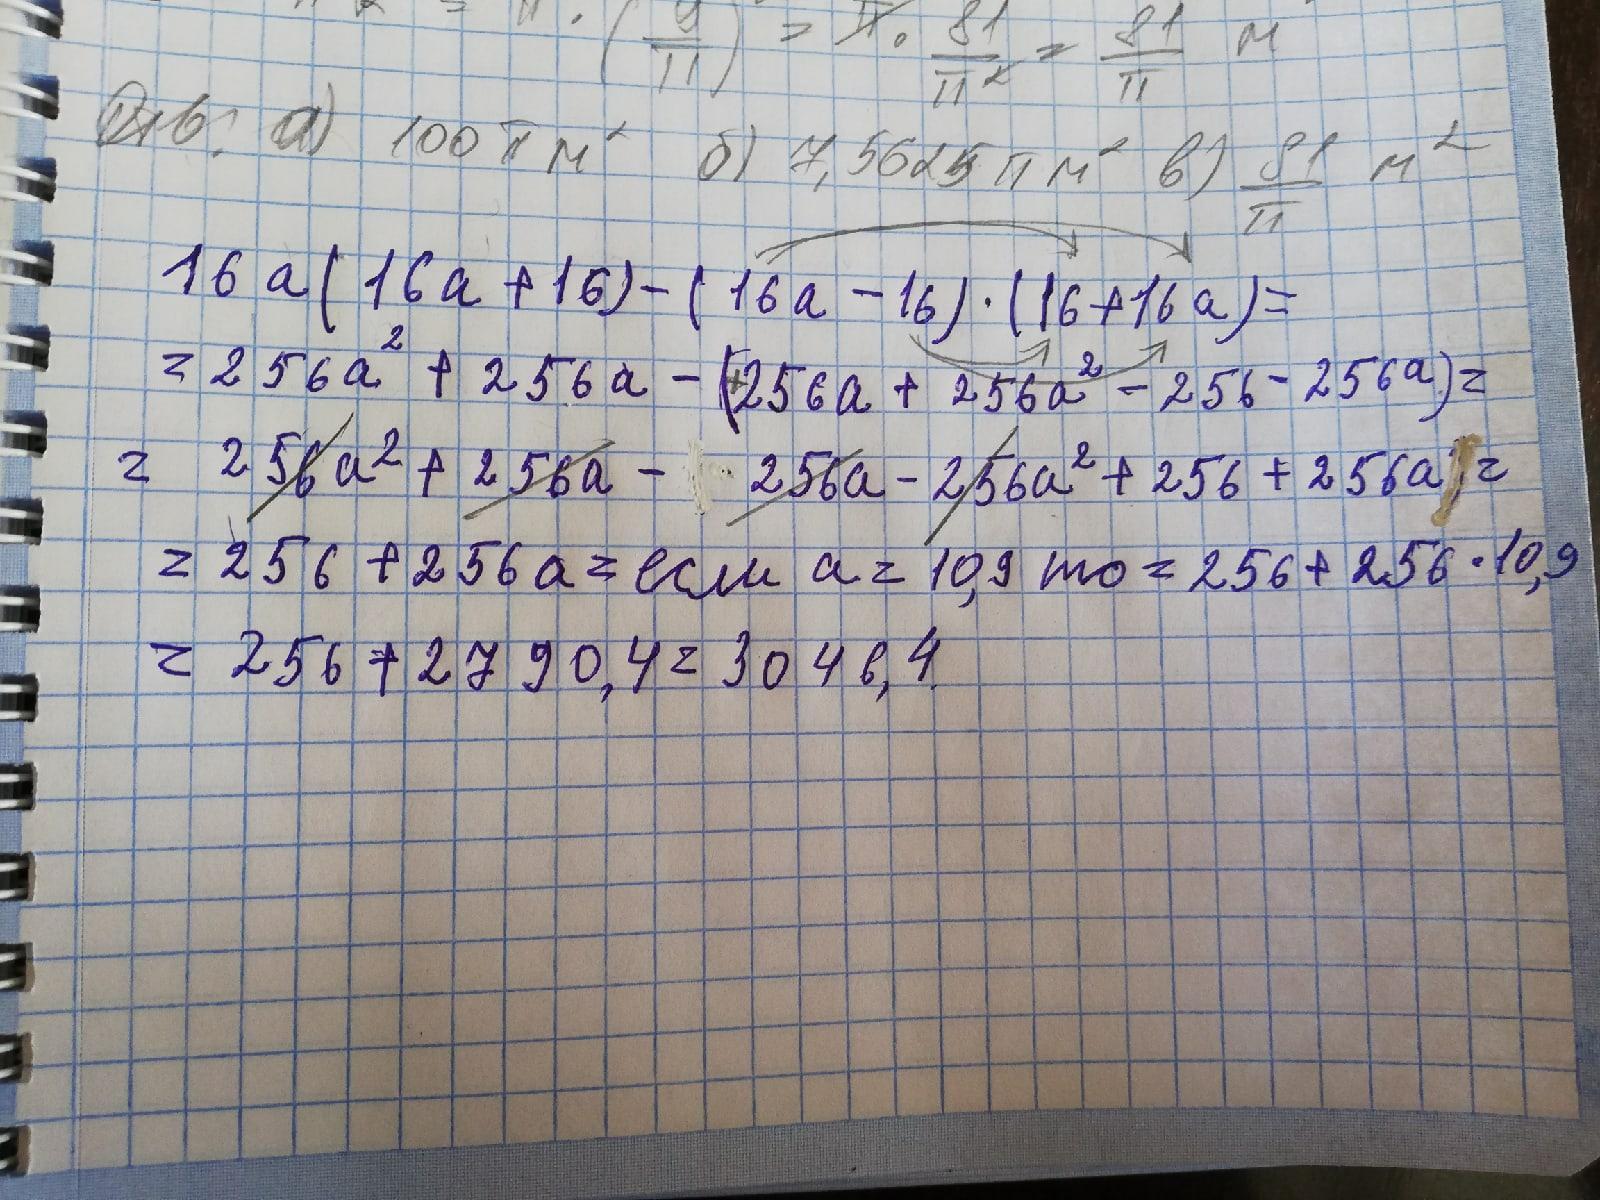 = π · (9/π) = π · 81/π² = 81/π м
Отв: а) 100π м² б) 7,5625π м² в) 81/π м²
16a(16a+16)-(16a-16)·(16+16a)=
=256a²+256a-(+256a+256a²-256-256a)=
= 256a²+256a- 256a-256a²+256+256a)=
=256+256a=если a=10,9 то=256+256·10,9
=256+2790,4=3046,4